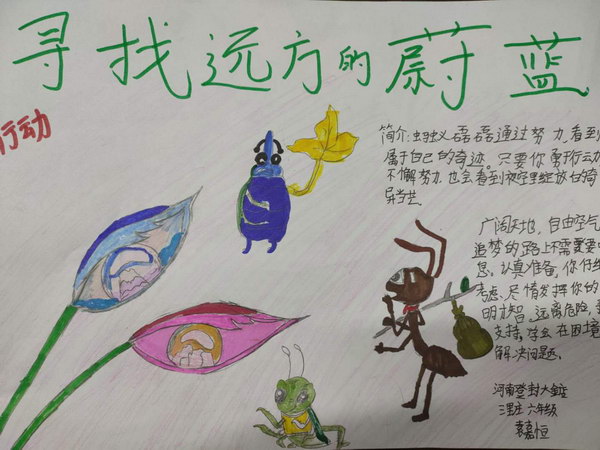 寻找远方的蔚蓝
行动
简介:蚂蚁磊磊通过努力,看到
属于自己的奇迹。只要你勇行动
不懈努力,也会看到夜空里绽放的奇
异
广阔天地,自由空气
追梦的路上不需要
息。认真准备,你仔细
考虑。尽情发挥你的
明才智。远离危险,
支持。学会在困境
解决问题。
河南登封大金店
三里庄六年级
袁嘉恒